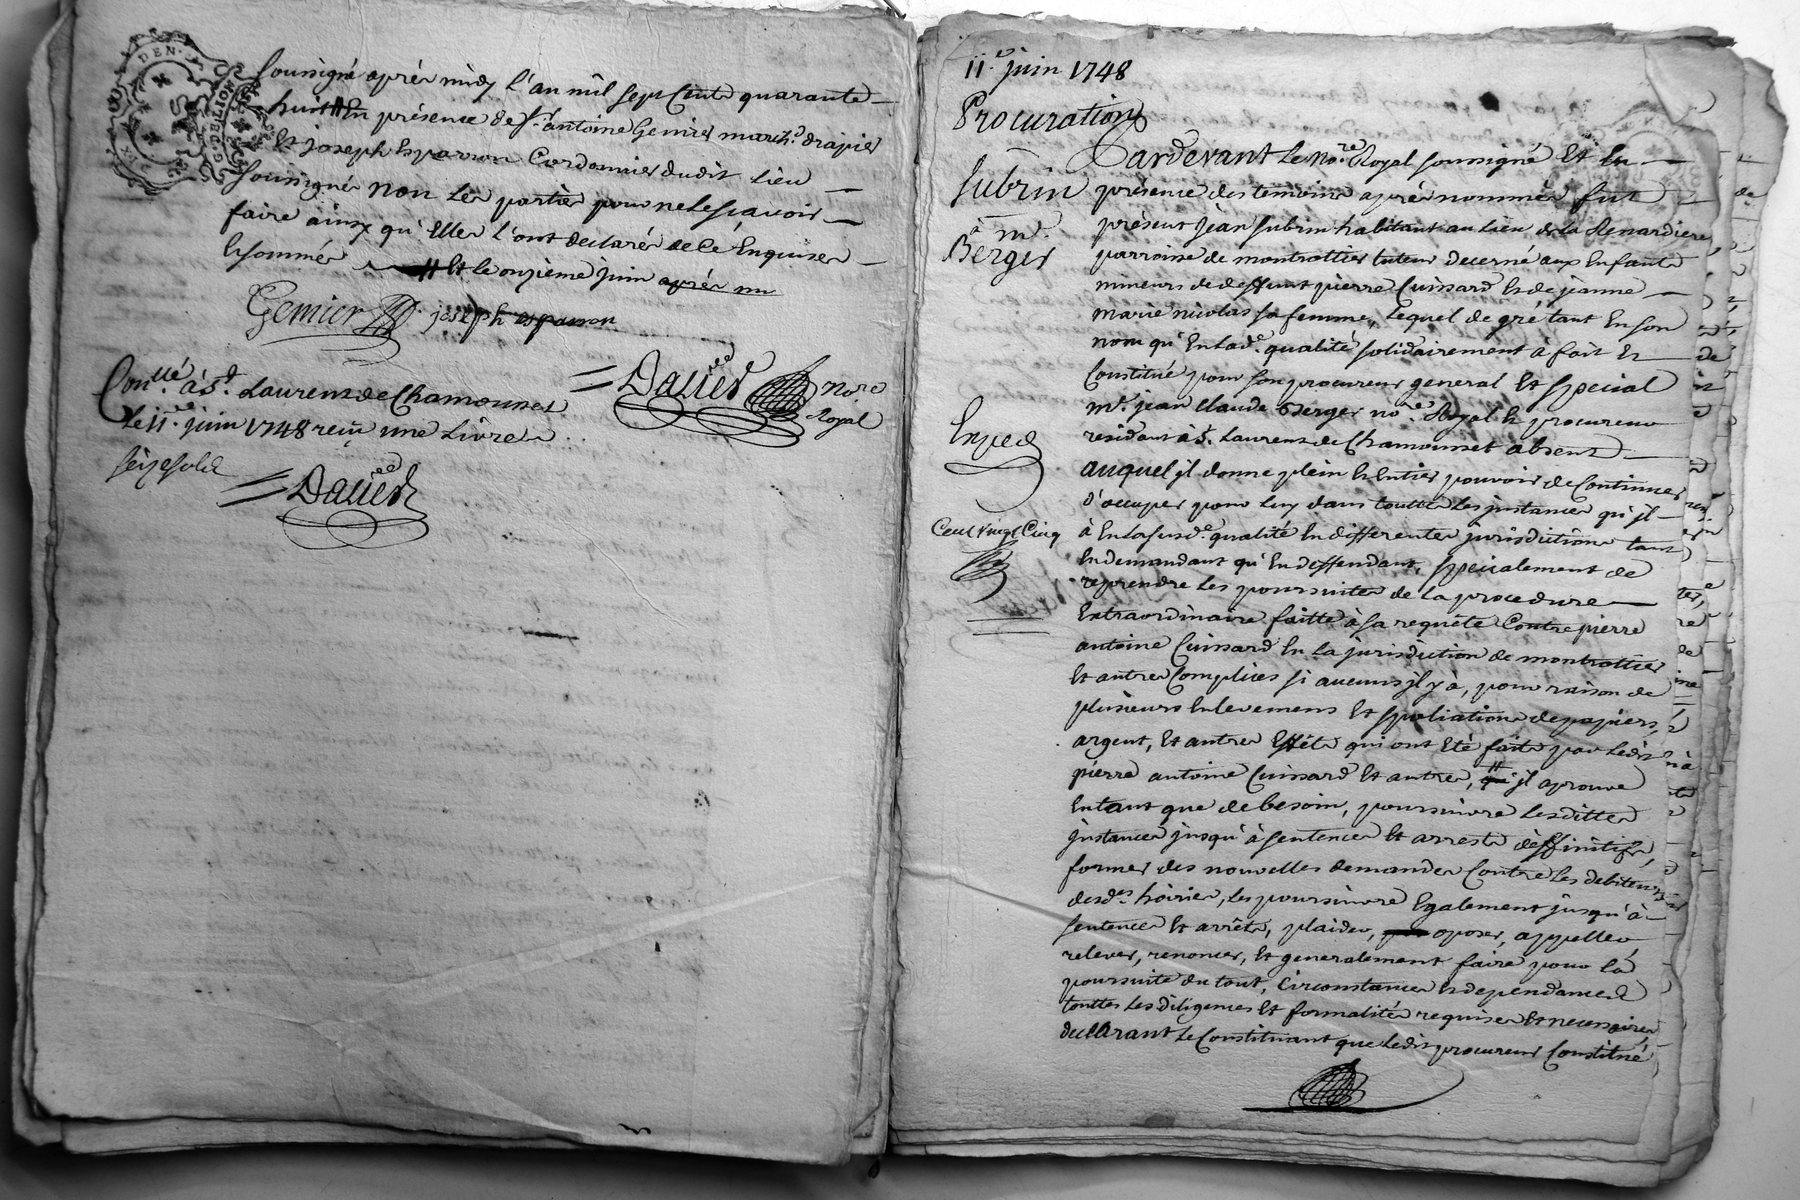 DEN
G. DE LION
soussigné après midy l'an mil sept Cents quarante
huit # En présence de Sr. antoine Gemier march.d drapier
Et joseph Esparron Cordonnier dudit Lieu
soussignés non les parties pour ne le sçavoir
faire ainsy qu'Elles l'ont declaré de ce Enquises
Et sommés # Et le onzieme juin après mi
Gemier joseph esparron
Davier No.re
Royal
Con.llé à St. Laurent de Chamousset
Le 11.e juin 1748 reçu une Livre
seize sols
Davier
11.e juin 1748
Procuration
subrin
à m.e
Berger
Exped
Cent vingt Cinq
Pardevant Le No.re Royal soussigné Et En
présence des temoins après nommés fut
présent jean subrin habitant au lieu de la Renardiere
parroisse de montrottier tuteur decerné aux Enfants
mineurs de deffunt pierre Cuissard Et de jeanne
marie nicolas sa femme, Lequel de gré tant En son
nom qu'En lad.e qualité solidairement à fait Et
Constitué pour son procureur general Et special
m.e jean Claude Berger no.re Royal Et procureur
residant à St. Laurent de Chamousset absent
auquel jl donne plein Et Entier pouvoir de Continuer
d'occuper pour Luy dans touttes Les jnstances qu'jl
à En la susd.e qualité En differentes jurisdictions tant
En demandant qu'En deffendant, specialement de
reprendre Les poursuittes de la procedure
Extraordinaire faitte à sa requête Contre pierre
antoine Cuissard En la jurisdiction de montrottier
Et autres Complices si aucuns jl y à, pour raison de
plusieurs Enlevemens Et spoliations de papiers,
argent, Et autres Effets qui ont Eté faits par Ledit
pierre antoine Cuissard Et autres, # jl aprouve
En tant que de besoin, poursuivre Lesdittes
jnstances jusqu'à sentences Et arrests deffinitifs,
former des nouvelles demandes Contre Les debiteurs
desd.es hoiries, Les poursuivre Egalement jusqu'à
sentences Et arrêts, plaider, oposer, appeller,
relever, renoncer, Et generalement faire pour la
poursuitte du tout, Circonstances Et dependances
touttes Les diligences Et formalités requises Et necessaires
declarant Le Constituant que Ledit procureur Constitué